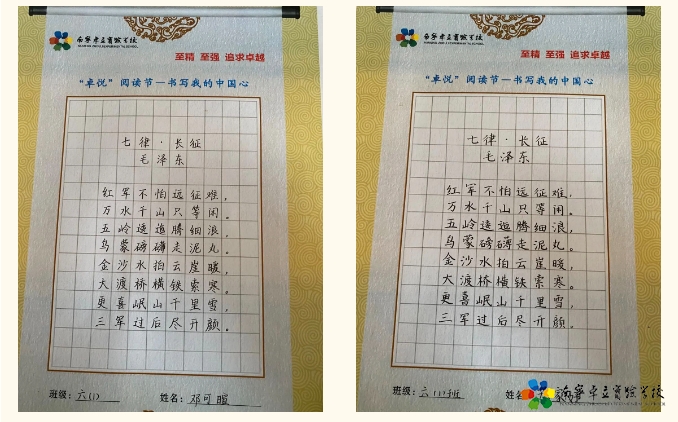 南宁卓立实验学校
至精 至强 追求卓越
“卓悦”阅读节—书写我的中国心
七律·长征
毛泽东
红军不怕远征难，
万水千山只等闲。
五岭逶迤腾细浪，
乌蒙磅礴走泥丸。
金沙水拍云崖暖，
大渡桥横铁索寒。
更喜岷山千里雪，
三军过后尽开颜。
班级：六(1) 姓名：邓可暄
南宁卓立实验学校
至精 至强 追求卓越
“卓悦”阅读节—书写我的中国心
七律·长征
毛泽东
红军不怕远征难，
万水千山只等闲。
五岭逶迤腾细浪，
乌蒙磅礴走泥丸。
金沙水拍云崖暖，
大渡桥横铁索寒。
更喜岷山千里雪，
三军过后尽开颜。
班级：六(1)班 姓名：
南宁卓立实验学校